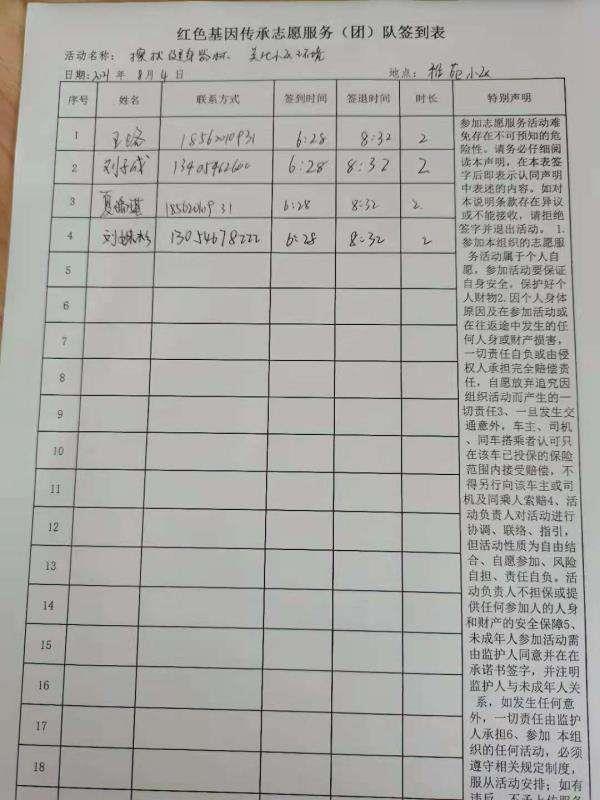 红色基因传承志愿服务（团）队签到表
活动名称： 擦拭健身器材 美化小区环境
日期：2021 年 8 月 4 日 地点： 雅苑小区
序号 姓名 联系方式 签到时间 签退时间 时长 特别声明
1 18562010931 6:28 8:32 2
2 13405462600 6:28 8:32 2
3 18562010931 6:28 8:32 2
4 13054678222 6:28 8:32 2
5
6
7
8
9
10
11
12
13
14
15
16
17
18
参加志愿服务活动难
免存在不可预知的危
险性。请务必仔细阅
读本声明，在本表签
字后即表示认同声明
中表述的内容。如对
本说明条款存在异议
或不能接收，请拒绝
签字并退出活动。 1.
参加本组织的志愿服
务活动属于个人自
愿，参加活动要保证
自身安全，保护好个
人财物2.因个人身体
原因及在参加活动或
在往返途中发生的任
何人身或财产损害，
一切责任自负或由侵
权人承担完全赔偿责
任，自愿放弃追究因
组织活动而产生的一
切责任3、一旦发生交
通意外，车主、司机
、同车搭乘者认可只
在该车已投保的保险
范围内接受赔偿，不
得另行向该车主或司
机及同乘人索赔4、活
动负责人对活动进行
协调、联络、指引，
但活动性质为自由结
合、自愿参加、风险
自担、责任自负。活
动负责人不担保或提
供任何参加人的人身
和财产的安全保障5、
未成年人参加活动需
由监护人同意并在在
承诺书签字，并注明
监护人与未成年人关
系，如发生任何意
外，一切责任由监护
人承担6、参加 本组
织的任何活动，必须
遵守相关规定制度，
服从活动安排；如有